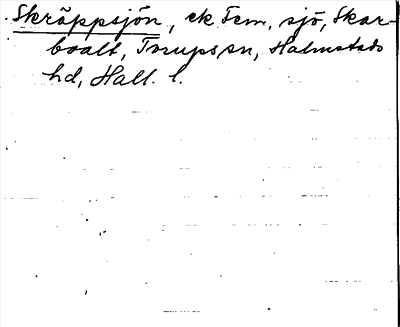 Skräppsjön, ek Fem, sjö, Skar-
boalt, Torups sn, Halmstads
hd, Hall. l.